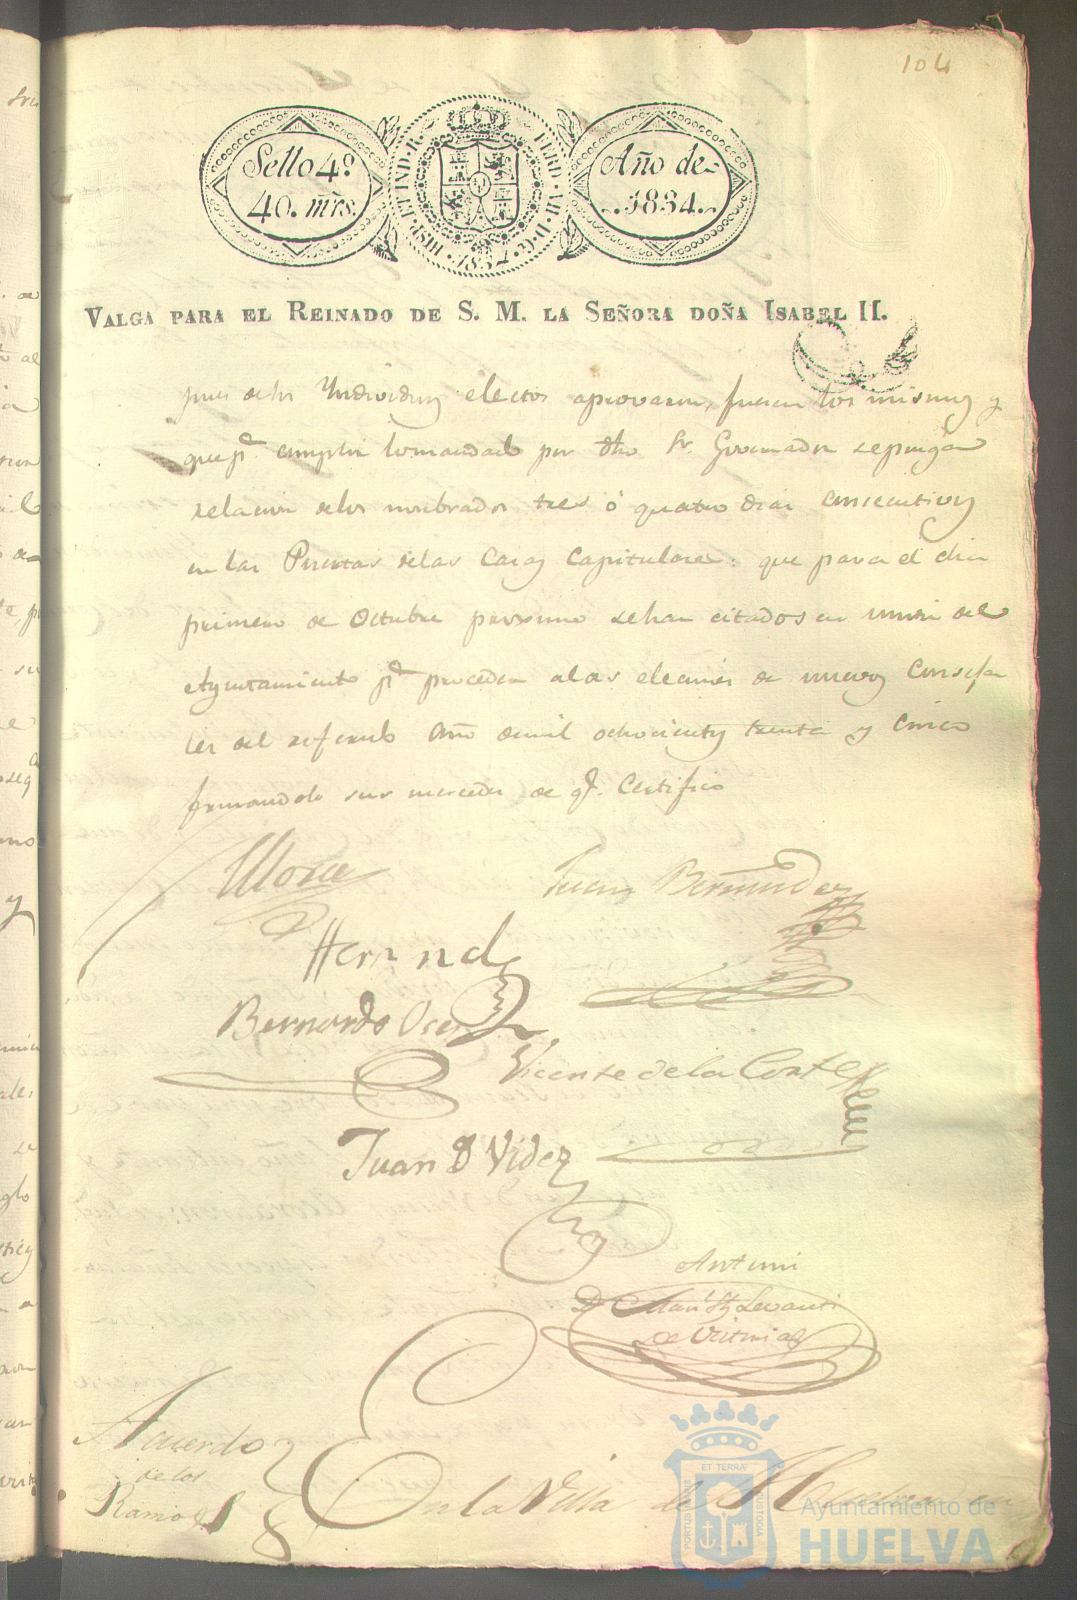 104
Sello 4º.
40. mrs.
HISP. ET IND. R. FERD. VII. D. G. 1834.
Año de
1834.
VALGA PARA EL REINADO DE S. M. LA SEÑORA DOÑA ISABEL II.
pues delos Individuos electos aprovaron, fueran los mismos y
que pª. cumplir lo mandado por dho Sr. Governador se ponga
relacion delos nombrados tres ó quatro dias consecutivos
en las Puertas delas Casas Capitulares: que para el dia
primero de Octubre proximo sehan citados en union del
Ayuntamiento pª. proceder alas elecciones de nuevos Conseja
les del referido Año demil ochocientos treinta y cinco
firmandolo sus mercedes de qe. Certifico
Mora
Juan Bermudez
Hernandz
Bernardo
Vicente de la Corte
Juan D Videz
Ante mi
Dn Manl Levanti
de
Acuerdo
de los
Ramos
En la Villa de Huelva en
PORTUS MARIS ET TERRÆ CUSTODIA
Ayuntamiento de
HUELVA